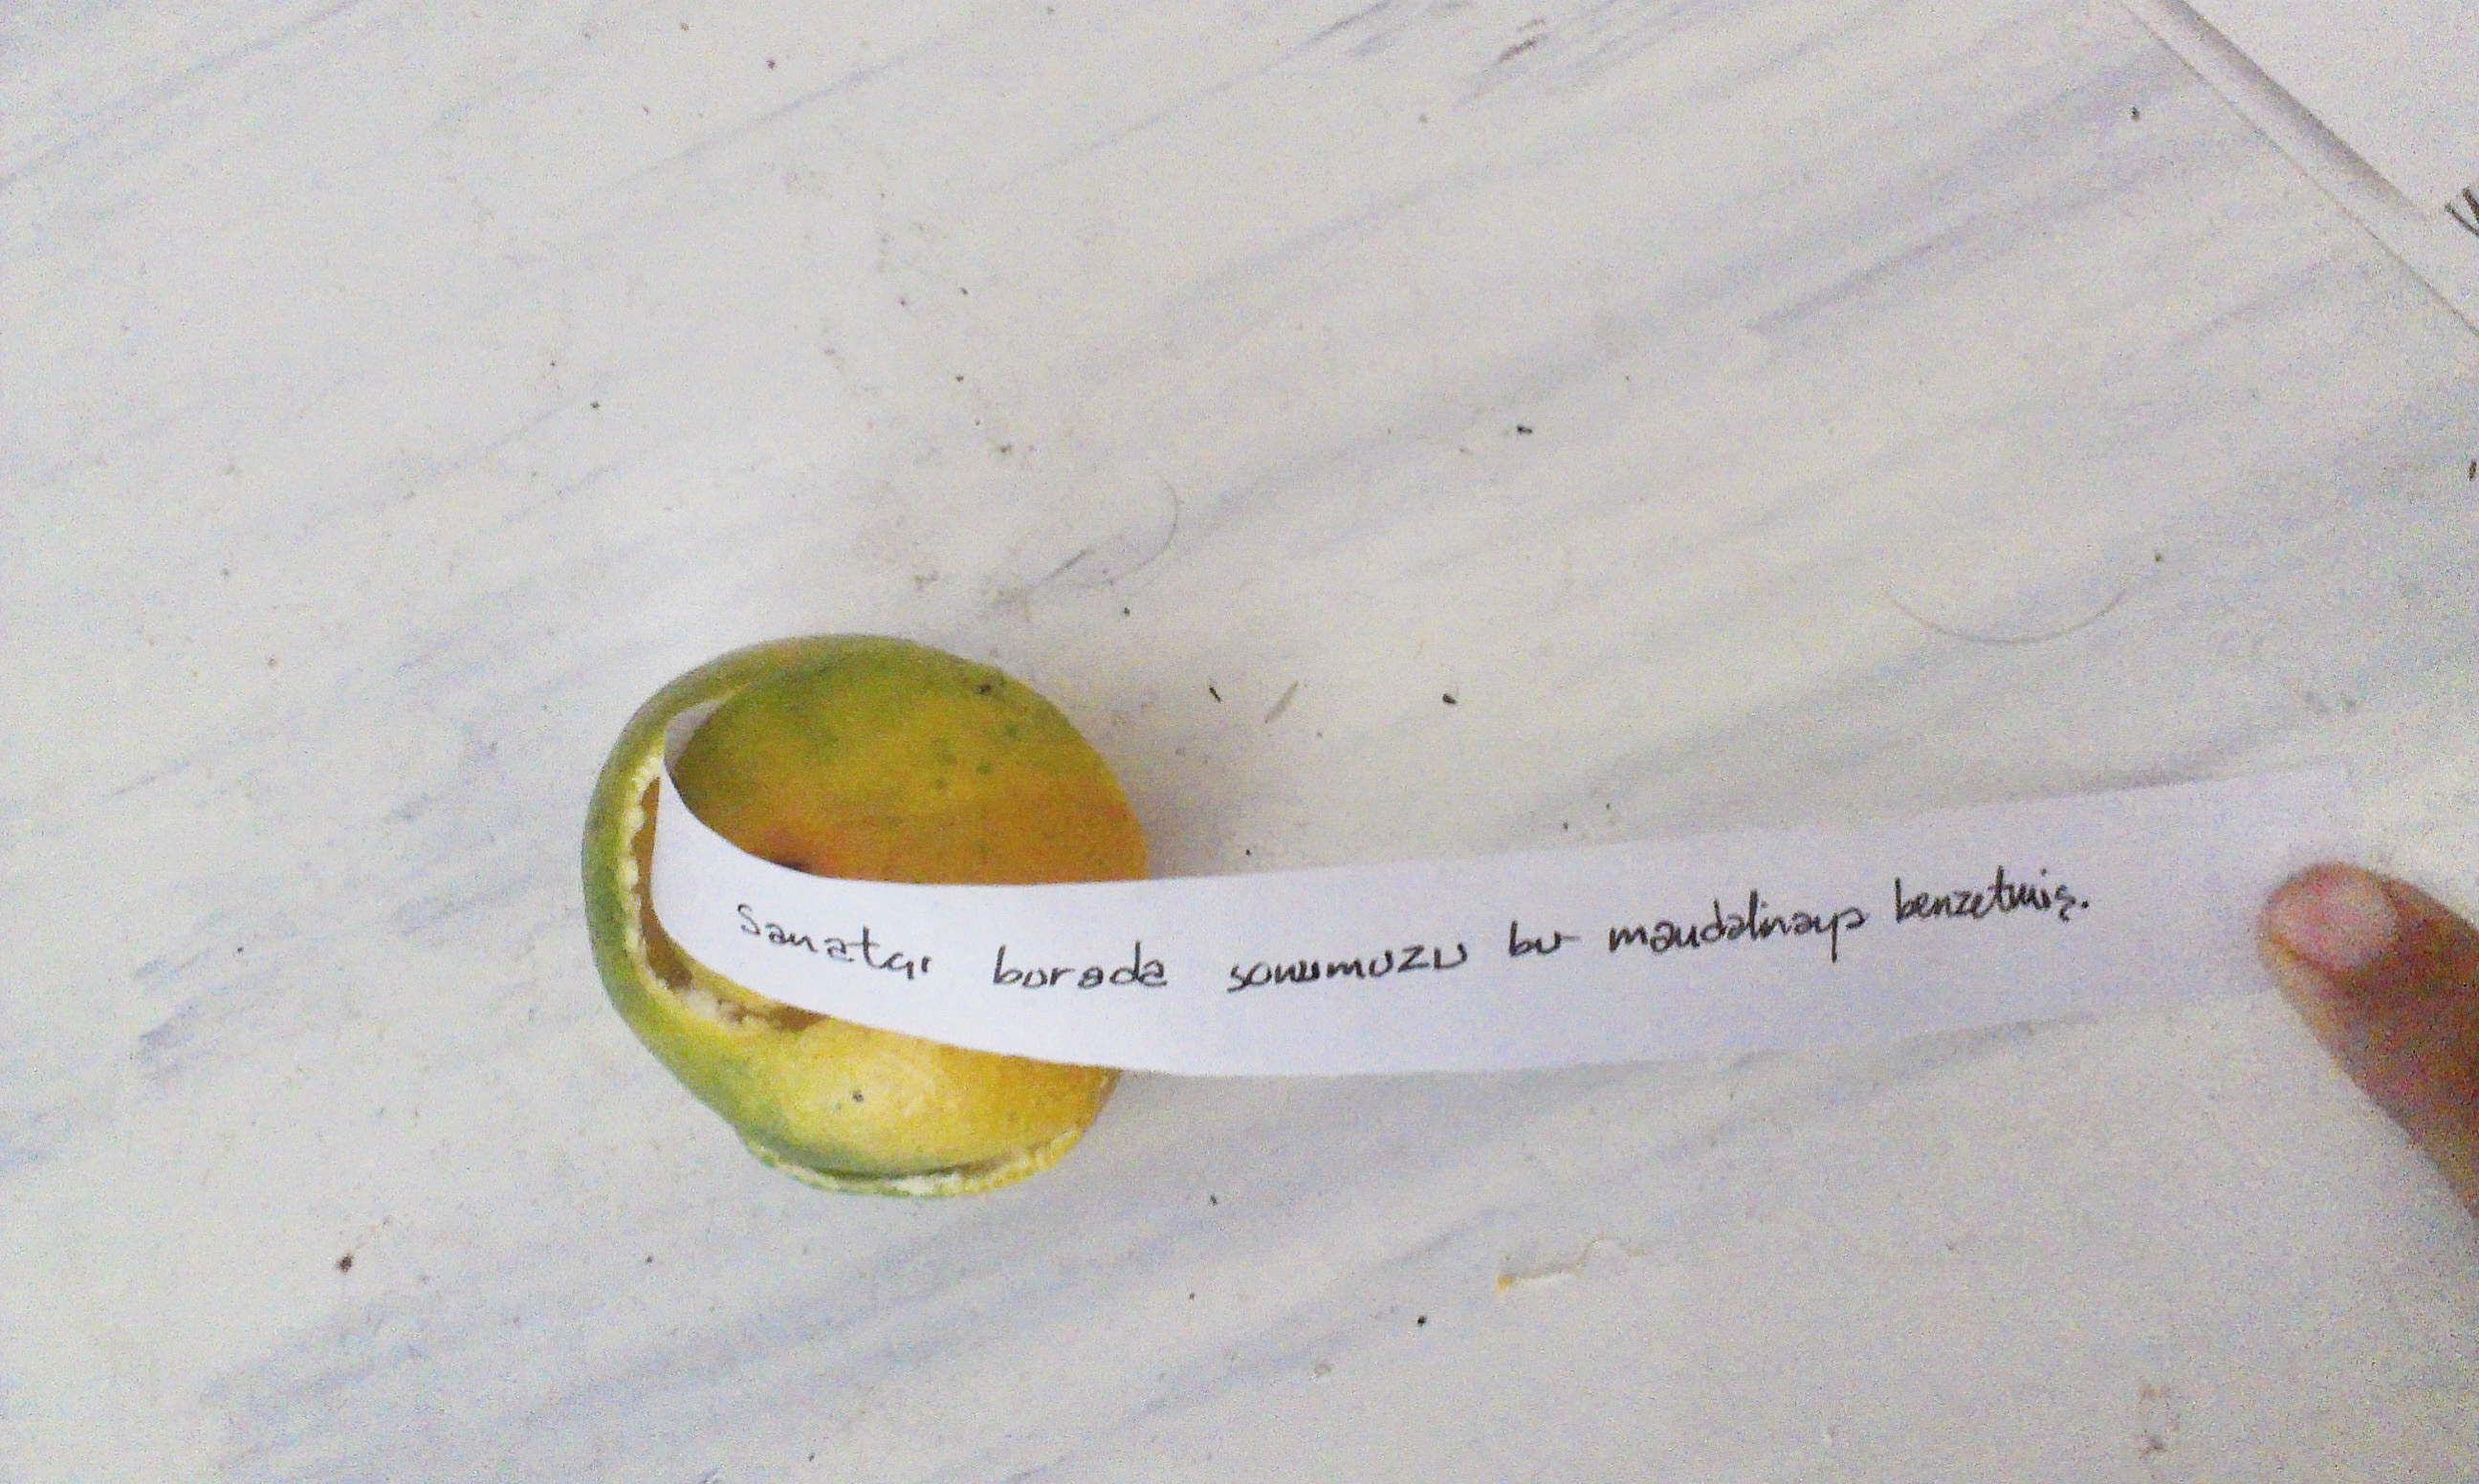 Sanatçı burada sonumuzu bu mandalinaya benzetmiş.